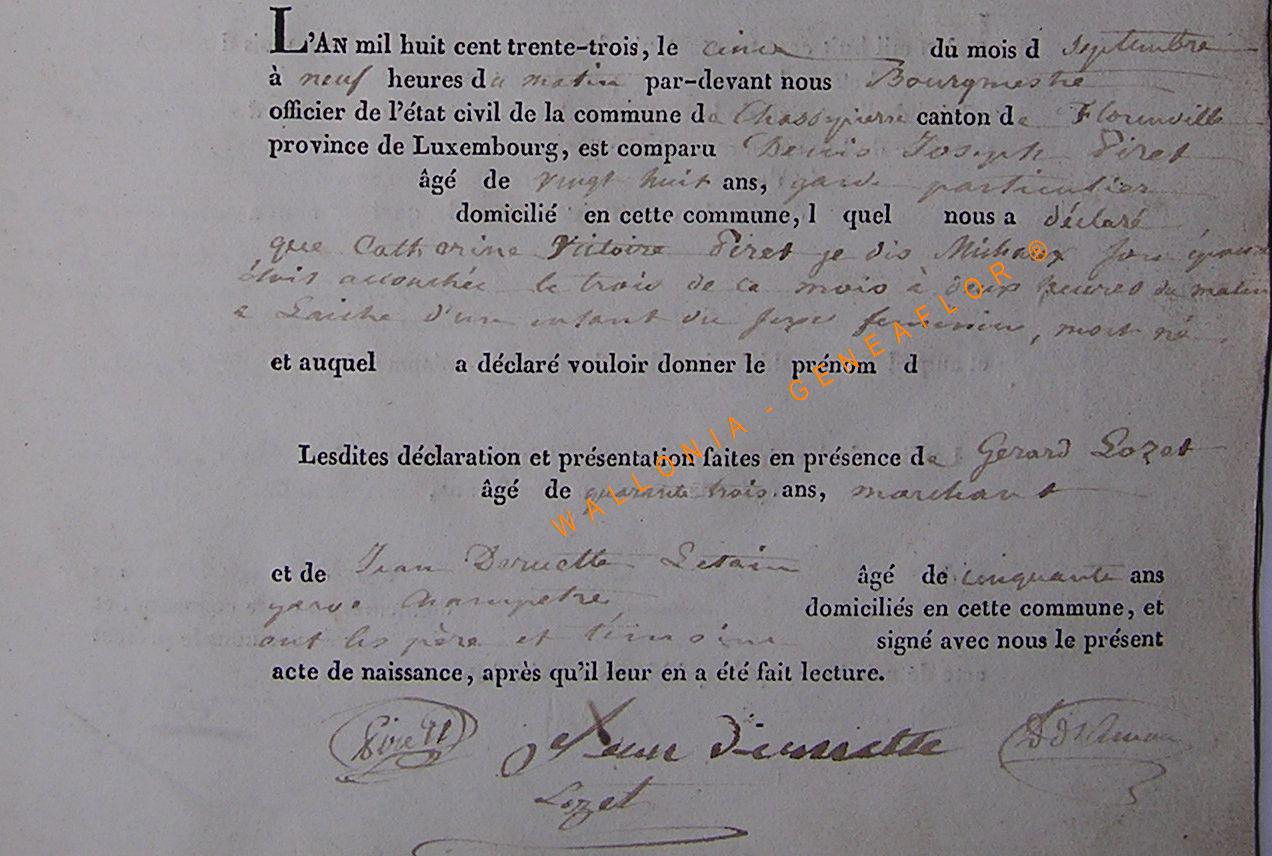 L'AN mil huit cent trente-trois, le cinq du mois d septembre
à neuf heures du matin par-devant nous Bourgmestre
officier de l'état civil de la commune de Chassepierre canton de Florenville
province de Luxembourg, est comparu Denis Joseph Piret
âgé de vingt huit ans, garde particulier
domicilié en cette commune, l quel nous a déclaré
que Catherine Victoire Piret je dis Michaux son épouse
étoit accouchée le trois de ce mois à deux heures du matin
a Laiche d'un enfant du sexe feminin, mort né.
et auquel a déclaré vouloir donner le prénom d
Lesdites déclaration et présentation faites en présence de Gerard Lozet
âgé de quarante trois ans, marchant
et de Jean Deruette Letain âgé de cinquante ans
garde champetre, domiciliés en cette commune, et
ont les père et témoins signé avec nous le présent
acte de naissance, après qu'il leur en a été fait lecture.
Piret Jean
Lozet
WALLONIA - GENEAFLOR ®